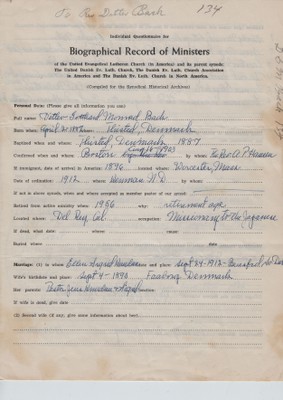 To Rev Detlev Bach 134
Individual Questionnaire for
Biographical Record of Ministers
of the United Evangelical Lutheran Church (in America) and its parent synods:
The United Danish Ev. Luth. Church, The Danish Ev. Luth. Church Association
in America and The Danish Ev. Luth. Church in North America.
(Compiled for the Synodical Historical Archives)
Personal Item: (Please give all information you can)
Full name: Detlev Gotthard Monrad Bach
Date when: April 20, 1887 where: Thisted, Denmark
Baptized when and where: Thisted, Denmark 1887
Confirmed when and where: Boston by whom: Rev. A. P. Hansen
If immigrated, date of arrival in America: 1896 located where: Worcester, Mass.
Date of ordination: 1912 where: N.D. by whom:
If not in above synods, when and where accepted as member pastor of our synod:
Retired from active ministry when: 1956 why: retirement age
Located where: Del Rey, Cal. occupation: Missionary to the Japanese
If dead, what date where: cause:
Buried where date
Marriage: (1) to whom: Ellen Sigrid place and date: Sept 24-1912-
Wife's birthdate and place: Sept 4 - 1890 Denmark
Her parents: Pastor Jens
If wife is dead, give date
(2) Second wife (if any; give more information about her).